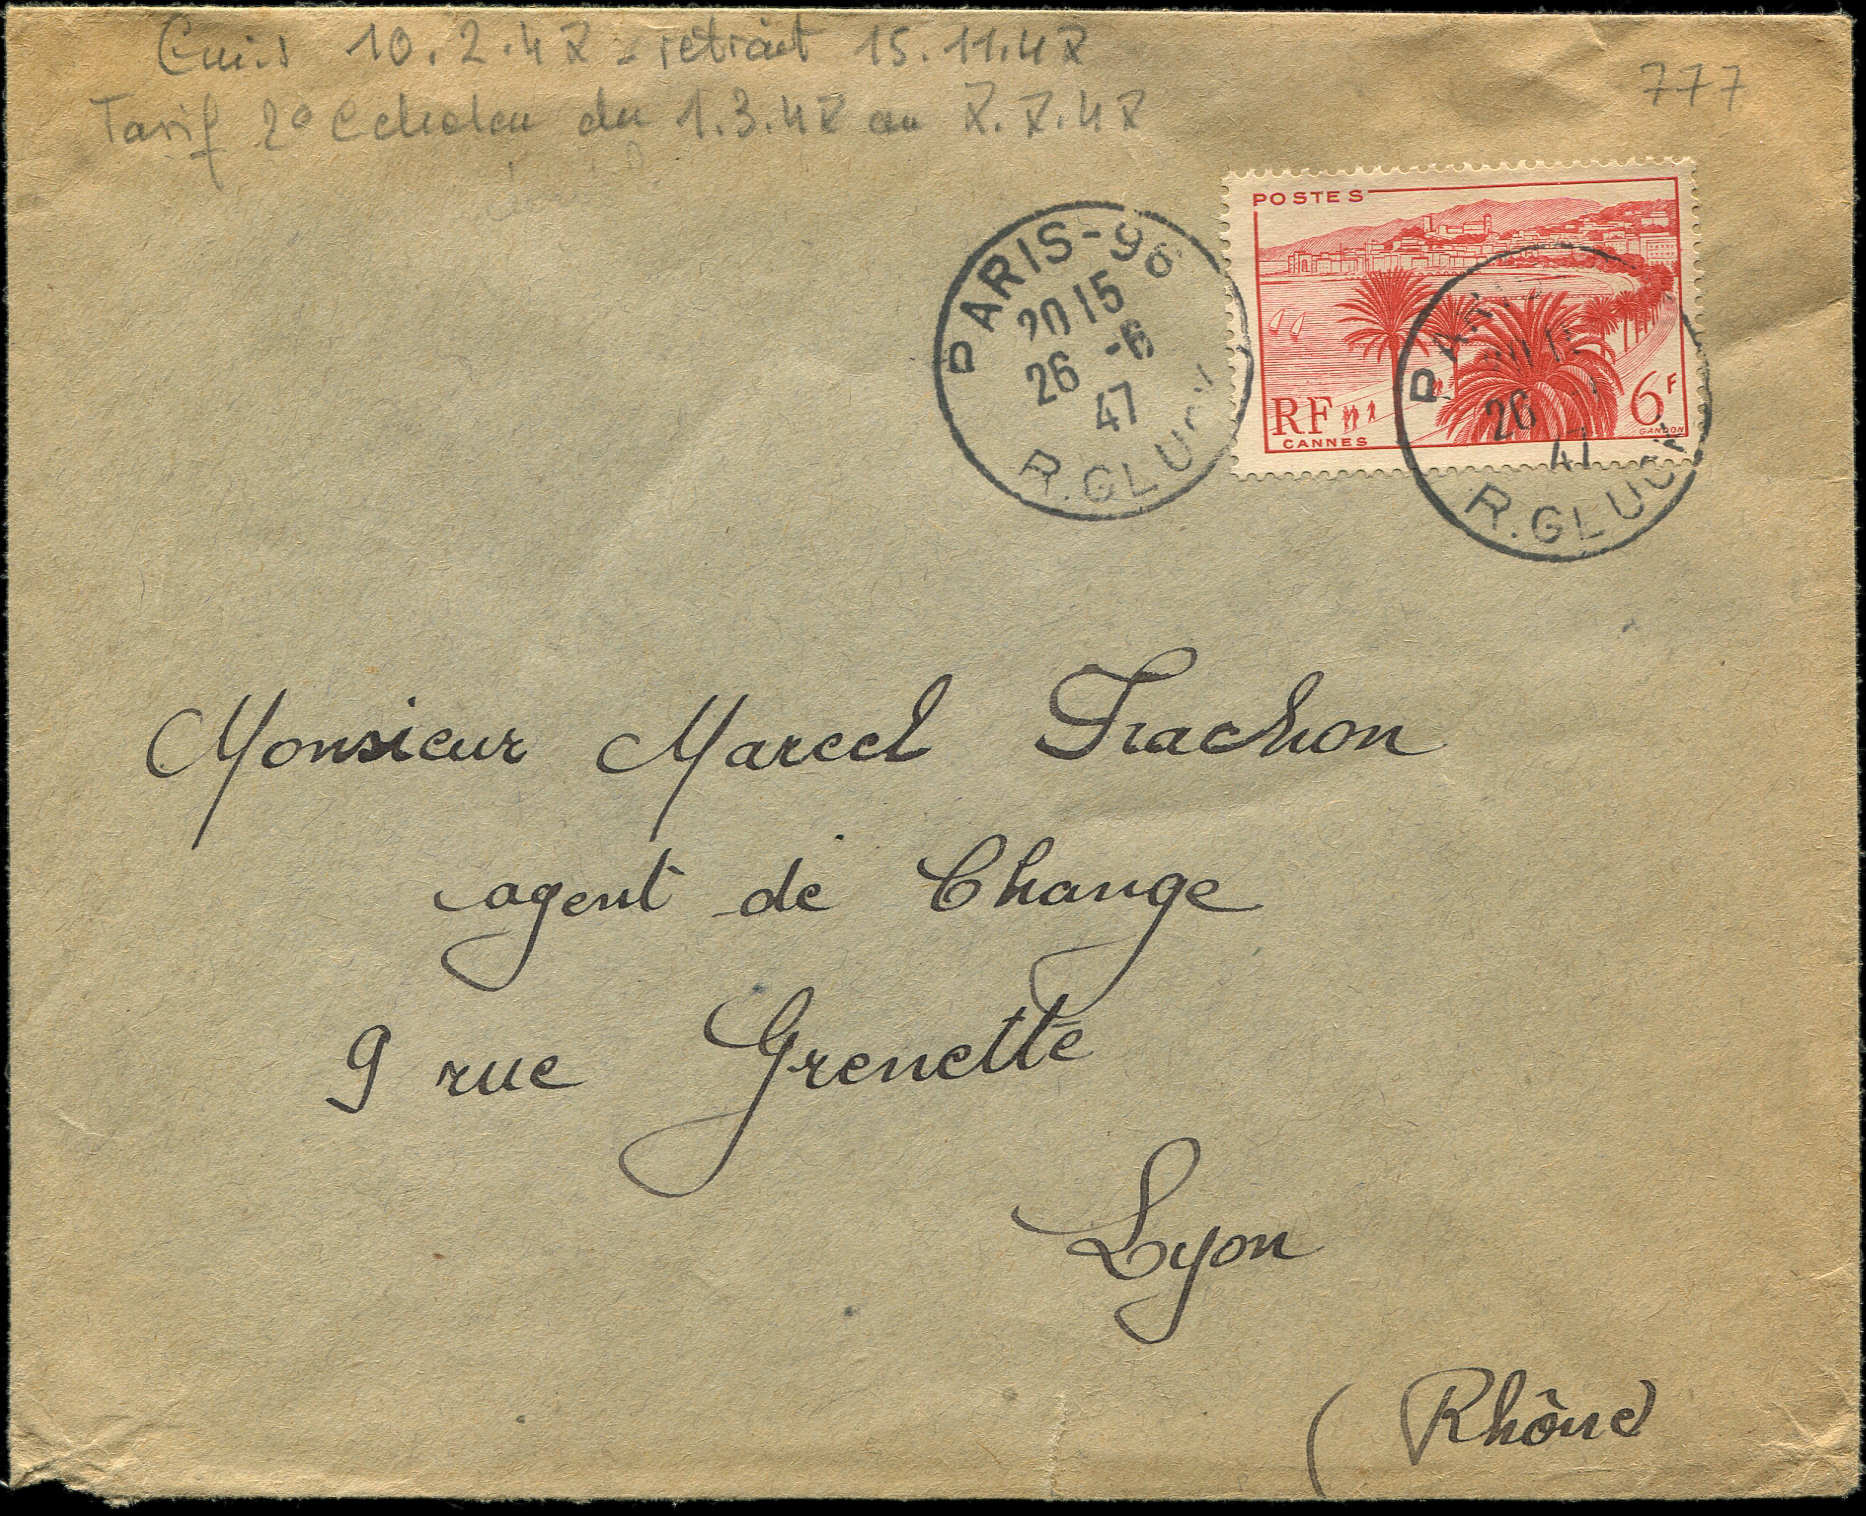 Emis 10.2.47 - retrait 15.11.47
Tarif 2° Echelon du 1.3.47 au 7.7.47
777
PARIS-96
20 15
26 -6
47
R. GLUCK
POSTES
RF
CANNES
6F
GANDON
PARIS
20 15
26
47
R. GLUCK
Monsieur Marcel Trachon
agent de Change
9 rue Grenette
Lyon
(Rhône)